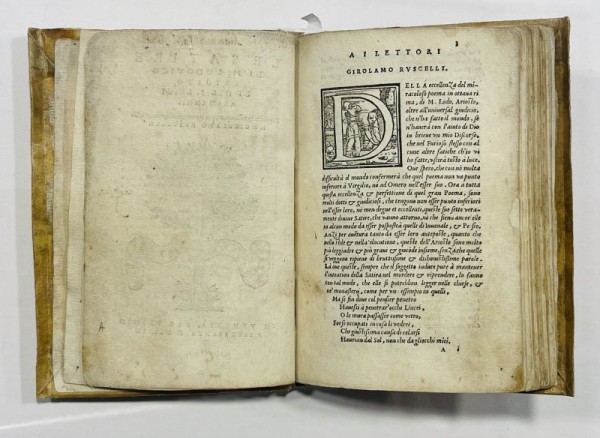 3
A I LETTORI
GIROLAMO RVSCELLI.
DELLA eccellenza del mi-
racoloso poema in ottaua ri
ma, di M. Lodo. Ariosto,
oltre all'vniuersal giudicio,
che n'ha fatto il mondo, se
n'hauerà con l'aiuto di Dio
in brieue vn mio Discorso,
che nel Furioso stesso con al
cune altre fatiche ch'io vi
ho fatte, vscirà tosto à luce.
Oue spero, che con nō molta
difficultà il mondo confermerà che quel poema non va punto
inferiore à Virgilio, nè ad Omero nell'esser suo. Ora a tutta
questa eccellenza & perfettione di quel gran Poema, sono
molti dotti & giudiciosi, che tengono non esser punto inferiori
nell'esser loro, nè men degne et eccellenti, queste sue sette vera
mente diuine Satire, che vanno attorno, nè che sieno ancor elle
in alcun modo da esser posposte à quelle di Iuuenale, & Persio,
Anzi per cultura tanto da esser loro anteposte, quanto che
nello stile & nella elocutione, queste dell'Ariosto sono molto
più leggiadre & più graui & gioconde insieme, senza che quelle
si veggion ripiene di bruttissime & dishonestissime parole.
Là oue queste, sempre che il soggetto induce pure à mantener
l'intention della Satira nel mordere & riprendere, lo fanno
in tal modo, che elle si potrebbon legger nelle chiese, &
ne' monasteri, come per vn' essempio in quelle,
Ma se fin doue col pensier penetro
Hauessi à penetrar'occhi Lincei,
O le mura passasser come vetro,
Forse occupati in cosa li vedrei,
Che giustissima causa di celarsi
Haurian dal Sol, non che da gliocchi miei.
A